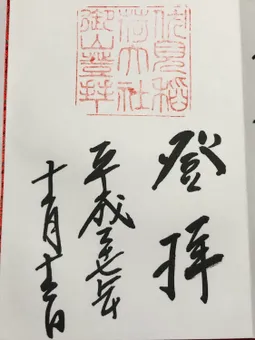 伏見稲
荷大社
御山登拝
登拝
平成二十七年
十月十一日